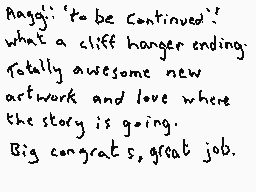 Aagg!! 'to be continued'!
what a cliff hanger ending.
Totally awesome new
artwork and love where
the story is going.
Big congrats, great job.